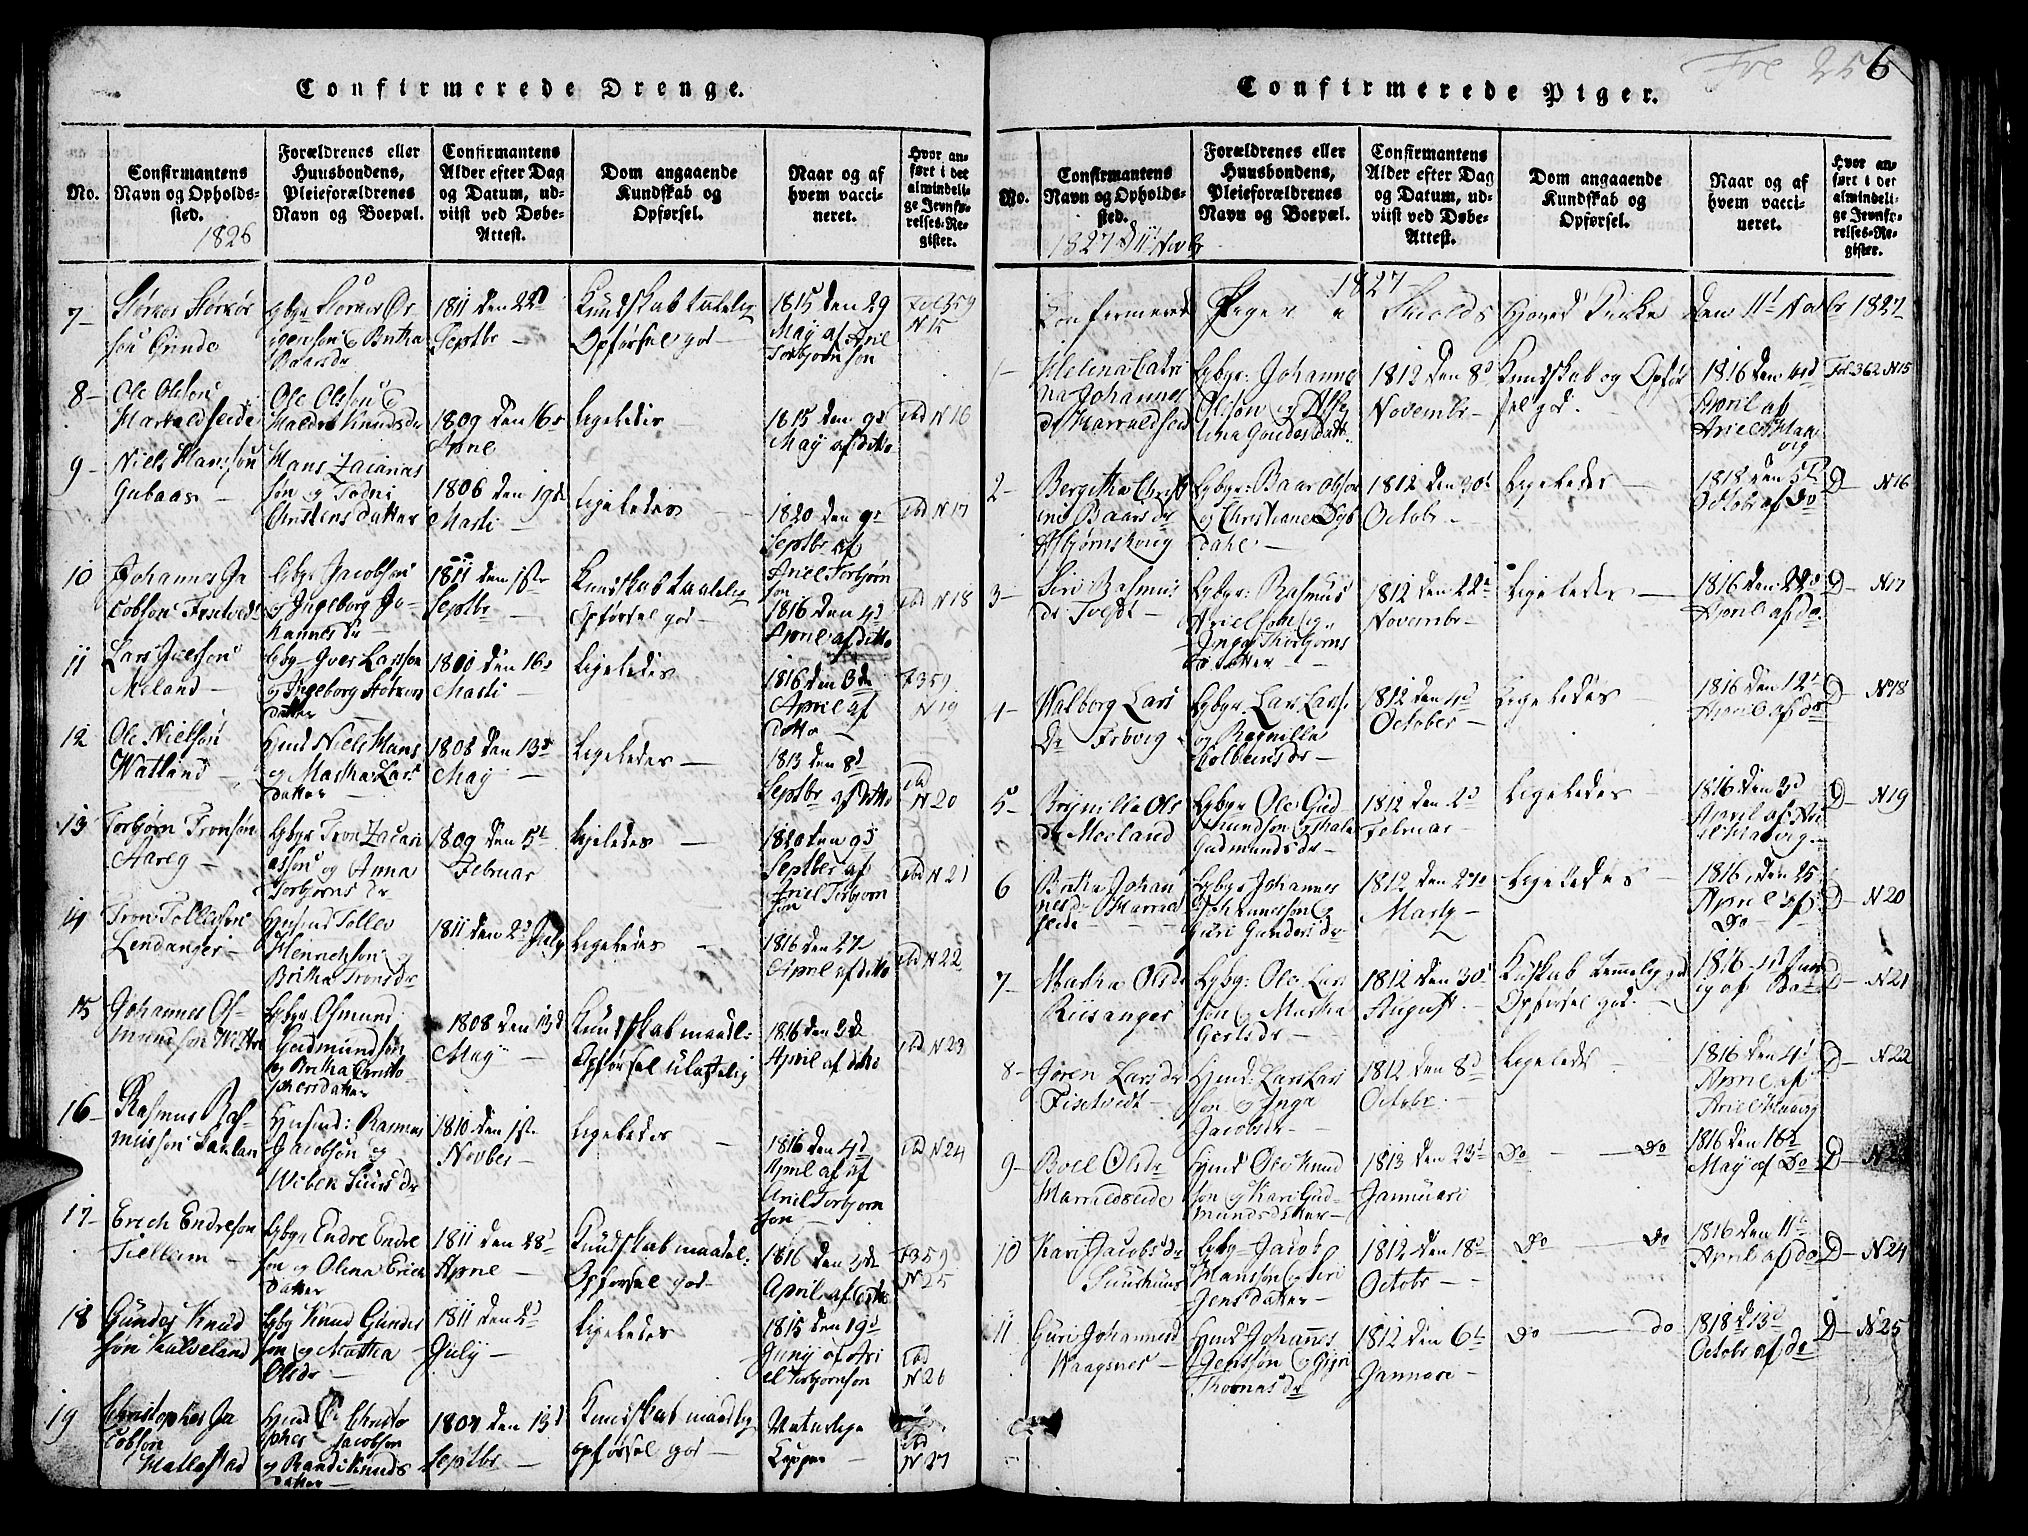 Confirmerede Drenge.
No.
Confirmantens
Navn og Opholds-
sted.
1826
Forældrenes eller
Huusbondens,
Pleieforældrenes
Navn og Boepæl.
Confirmantens
Alder efter Dag
og Datum, ud-
viist ved Døbe-
Attest.
Dom angaaende
Kundskab og
Opførsel.
Naar og af
hvem vacci-
neret.
Hvor an-
ført i det
almindeli-
ge Jevnfø-
relses-Re-
gister.
7-
Størker Størkør
søn Grinde
Gbgr Størker
og Britha
Baarsdr
1811 den 22d
Septbr
Kundskab taalelig
Opførsel god
1815 den 29
May af Ariel
Torbjørnsøn
Fol 359
N 15
8-
Ole Olsøn
Markaldseide
Ole Olsøn og
Maldr Knudsdr
1809 den 16d
Aprie
Ligeledes
1815 den 9d
May af ditto
Ibd N 16
9-
Niels Hansøn
Gubaas
Hans Zacarias
søn og Todni
Christensdatter
1806 den 19de
Marti
Ligeledes
1820 den 9d
Septbr af
Ariel Torbjørn
søn
Ibd N 17
10
Johannes Ja
cobsøn
Gbgr Jacobsøn
og Ingeborg Jo-
hannesdr
1811 den 1ste
Septbr
Kundskab taalelig
Opførsel god
1816 den 4d
April af ditto
Ibd N 18
11
Lars Iversøn
Meland
Gbg Iver Larsøn
og Ingeborg Størkers
datter
1810 den 16d
Marti
Ligeledes
1816 den 3de
April af
ditto
F 359
N 19
12
Ole Nielsøn
Watland
Hmd Niels Hans
og Martha Lars
datter
1808 den 13d
May
Ligeledes
1813 den 8d
Septbr af ditto
Ibd
N 20
13
Torbjørn Tronsøn
Aareg
Gbgr Tron Zacari
assøn og Anna
Torbjørnsdr
1809 den 5te
Februar
Ligeledes
1820 den 9d
Septber af
Ariel Torbjørn
søn
Ibd N 21
14
Tron Tollefsøn
Lendanger
Husmd Tollev
Heinrichsøn og
Britha Tronsdr
1811 den 2d July
Ligeledes
1816 den 27
April af ditto
Ibd N 22
15
Johannes Os-
mundsøn
Gbgr Osmund
Gudmundsøn
og Britha Christo
phersdatter
1808 den 13d
May
Kundskab maadl:
Opførsel ulastelig
1816 den 3de
April af ditto
Ibd N 23
16-
Rasmus Ras-
musson
Husmd: Rasmus
Jacobsøn og
Weben
1810 den 1ste
Novber
Ligeledes
1816 den 4d
April af
Ariel Torbjørn
søn
Ibd N 24
17-
Erich Endresøn
Gbgr Endre Endre
søn og Olina Erich
datter
1811 den 28d
Aprie
Kundskab maadel:
Opførsel god
1816 den 3de
April af ditto
F 359
N 25
18
Gunder Knud
søn Kalseland
Gbg Knud Gunder
søn og Martha
Olsdr
1811 den 2d
July
Ligeledes
1815 den 19d
Juny af Ari
el Torbjørnsøn
Ibd
N 26
19
Christopher Ja
cobsøn
Mallastad
Hmd Christo
pher Jacobsøn
og Randi Knuds
datter
1807 den 13d
Septbr
Kundskab maadlig
opførsel god
Naturlige
Kopper
Ibd
N 27
Foe 256
Confirmerede Piger.
No.
Confirmantens
Navn og Opholds-
sted.
1827 d 11te Novbr
Forældrenes eller
Huusbondens,
Pleieforældrenes
Navn og Boepæl.
Confirmantens
Alder efter Dag
og Datum, ud-
viist ved Døbe-
Attest.
Dom angaaende
Kundskab og
Opførsel.
Naar og af
hvem vacci-
neret.
Hvor an-
ført i det
almindeli-
ge Jevnfø-
relses-Re-
gister.
1827
Confirmered Piger i Skiolds Hoved Kirke den 11te Novbr 1827
1-
Helena Catri
na Johannes
dr Marraldseid
Gbgr: Johannes
Olsøn og
lina Gundesdatt
1812 den 8d
Novembr
Kundskab og Opfør
sel god.
1816 den 4d
April af
Ariel
Fol 362 N 15
2-
Bergitha Christ
ine Baarsdr
Gbgr: Baar Olsøn
og Christiane
dahl
1812 den 30te
Octobr
Ligeledes
1818 den 5te
Octobr af Do
D- N 16
3-
Siri Rasmus
dr Tvedt
Gbgr: Rasmus
Arielsøn og
Inga Thorbjørns
datter
1812 den 22d
Novembr
Ligeledes
1816 den 22d
April af do
D- N 17
4-
Walborg Lars
Dr
Gbgr: Lars Larse
og Regnille
Colbensdr
1812 den 4d
October
Ligeledes
1816 den 12te
April af do
D- N 18
5-
Brynille Ols
dr Meeland
Gbgr Ole Gud
mundsøn og Male
Gudmundsdr
1812 den 2d
Februar
Ligeledes
1816 den 3d
April af Ari
el
D- N 19
6
Britha Johan
nesdr Marral
seide
Gbgr Johannes
Johannessøn og
Guri Gundersdr
1812 den 27d
Marty
Ligeledes
1816 den 25
April af
Do
D- N 20
7-
Martha Olsdr
Riisanger
Gbgr: Ole Lars
søn og Martha
Gertsdr
1812 den 30d
August
Kdskab temmelig god
Opførsel god
1816
D- N 21
8-
Gøren Larsdr
Fisetvedt
Hmd: Lars Lars
søn og Inga
Jacobsdr
1812 den 8d
Octobr
Ligeleds
1816 den 4d
Aprie af
Ariel
D- N 22
9-
Boel Olsdr
Marraldseide
Hmd Ole Knud
søn og Kari Gud
mundsdatter
1813 den 23d
Januari
Do Do
1816 den 16d
May af Do
D- N
10
Kari Jacobsdr
Gbg Jacob
Hansøn og Siri
Jensdatter
1812 den 18d
Octobr
Do Do
1816 den 11te
April af do
D- N 24
11
Guri Johannesd
Waagsnes
Hmd Johannes
Jenssøn og Gyri
Thoresdr
1812 den 6te
Januari
Do Do
1818 d 13d
Octobr af do
D- N 25